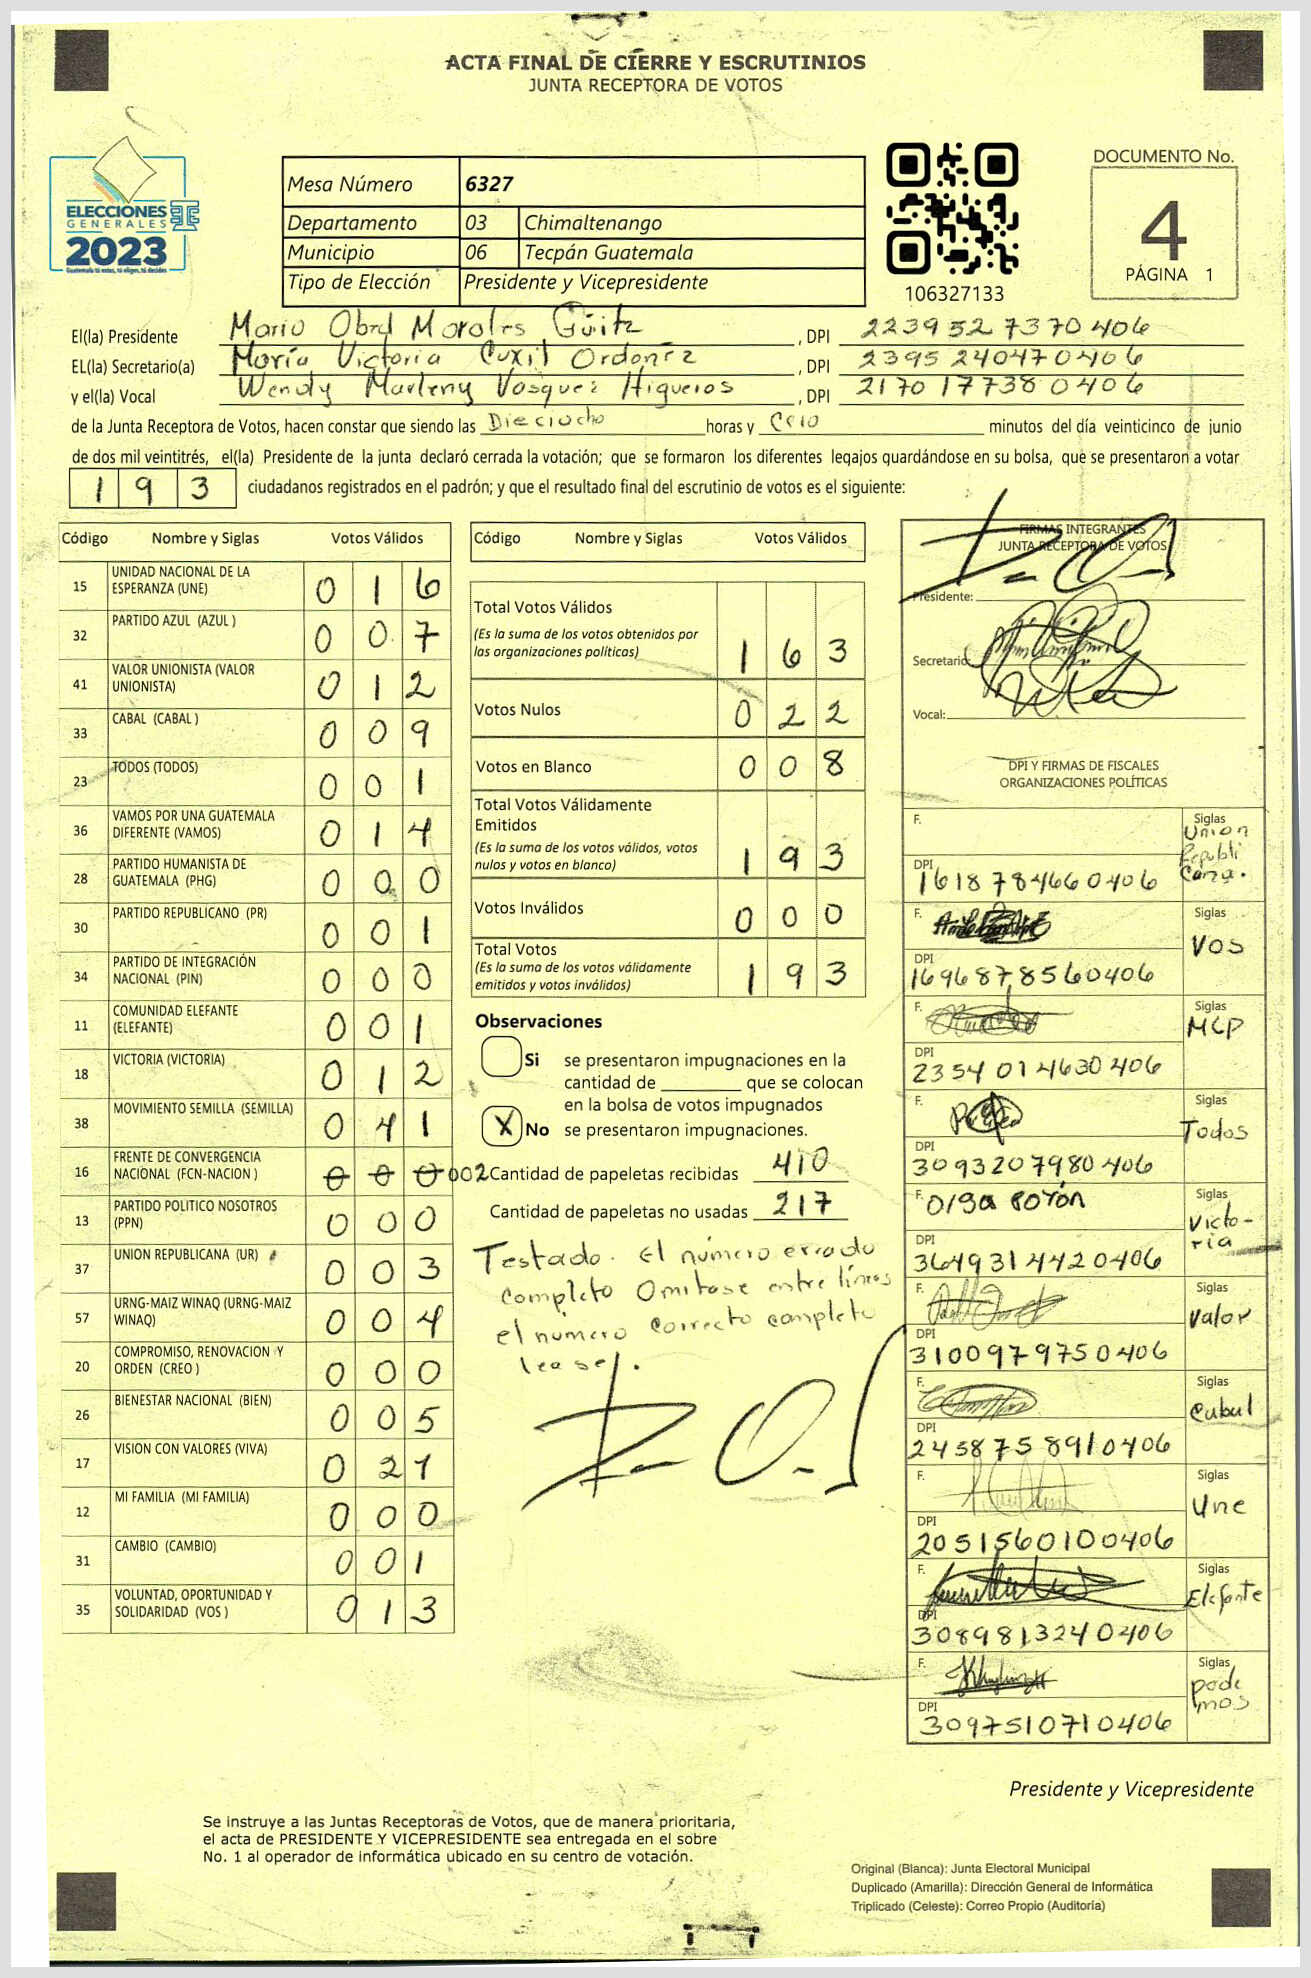 ACTA FINAL DE CIERRE Y ESCRUTINIOS
JUNTA RECEPTORA DE VOTOS
ELECCIONES
GENERALES
2023
Guatemala tú eres, tú eliges, tú decides
Mesa Número 6327
Departamento 03 Chimaltenango
Municipio 06 Tecpán Guatemala
Tipo de Elección Presidente y Vicepresidente
106327133
DOCUMENTO No.
4
PÁGINA 1
El(la) Presidente Mario Obed Morales Güitz, DPI 2239 52 7370 406
EL(la) Secretario(a) María Victoria Cuxil Ordoñez, DPI 2395 24047 0406
y el(la) Vocal Wendy Marleny Vasquez Higueros, DPI 2170 17738 0406
de la Junta Receptora de Votos, hacen constar que siendo las Dieciocho horas y Cero minutos del día veinticinco de junio
de dos mil veintitrés, el(la) Presidente de la junta declaró cerrada la votación; que se formaron los diferentes legajos guardándose en su bolsa, que se presentaron a votar
193 ciudadanos registrados en el padrón; y que el resultado final del escrutinio de votos es el siguiente:
Código Nombre y Siglas Votos Válidos
15 UNIDAD NACIONAL DE LA ESPERANZA (UNE) 0 1 6
32 PARTIDO AZUL (AZUL ) 0 0 7
41 VALOR UNIONISTA (VALOR UNIONISTA) 0 1 2
33 CABAL (CABAL ) 0 0 9
23 TODOS (TODOS) 0 0 1
36 VAMOS POR UNA GUATEMALA DIFERENTE (VAMOS) 0 1 4
28 PARTIDO HUMANISTA DE GUATEMALA (PHG) 0 0 0
30 PARTIDO REPUBLICANO (PR) 0 0 1
34 PARTIDO DE INTEGRACIÓN NACIONAL (PIN) 0 0 0
11 COMUNIDAD ELEFANTE (ELEFANTE) 0 0 1
18 VICTORIA (VICTORIA) 0 1 2
38 MOVIMIENTO SEMILLA (SEMILLA) 0 4 1
16 FRENTE DE CONVERGENCIA NACIONAL (FCN-NACION ) 0 0 0 002
13 PARTIDO POLITICO NOSOTROS (PPN) 0 0 0
37 UNION REPUBLICANA (UR) 0 0 3
57 URNG-MAIZ WINAQ (URNG-MAIZ WINAQ) 0 0 4
20 COMPROMISO, RENOVACION Y ORDEN (CREO ) 0 0 0
26 BIENESTAR NACIONAL (BIEN) 0 0 5
17 VISION CON VALORES (VIVA) 0 21
12 MI FAMILIA (MI FAMILIA) 0 0 0
31 CAMBIO (CAMBIO) 0 0 1
35 VOLUNTAD, OPORTUNIDAD Y SOLIDARIDAD (VOS ) 0 1 3
Código Nombre y Siglas Votos Válidos
Total Votos Válidos
(Es la suma de los votos obtenidos por
las organizaciones políticas) 1 6 3
Votos Nulos 0 2 2
Votos en Blanco 0 0 8
Total Votos Válidamente
Emitidos
(Es la suma de los votos válidos, votos
nulos y votos en blanco) 1 9 3
Votos Inválidos 0 0 0
Total Votos
(Es la suma de los votos válidamente
emitidos y votos inválidos) 1 9 3
Observaciones
Si se presentaron impugnaciones en la
cantidad de ________ que se colocan
en la bolsa de votos impugnados
X No se presentaron impugnaciones.
Cantidad de papeletas recibidas 410
Cantidad de papeletas no usadas 217
Testado. El número errado
completo Omitase entre líneas
el número correcto completo
lease.
FIRMAS INTEGRANTES
JUNTA RECEPTORA DE VOTOS
Presidente:
Secretario:
Vocal:
DPI Y FIRMAS DE FISCALES
ORGANIZACIONES POLÍTICAS
F. Siglas Union Republi cana.
DPI 1618 78466 0406
F. Siglas VOS
DPI 1696878560406
F. Siglas MLP
DPI 2354 01 4630 406
F. Siglas Todos
DPI 3093207980406
F. Olga Siglas Victo-ria
DPI 3649314420406
F. Siglas Valor
DPI 3100979750406
F. Siglas Cabal
DPI 2458758910406
F. Siglas Une
DPI 2051560100406
F. Siglas Elefante
DPI 3089813240406
F. Siglas pode mos
DPI 3097510710406
Presidente y Vicepresidente
Se instruye a las Juntas Receptoras de Votos, que de manera prioritaria,
el acta de PRESIDENTE Y VICEPRESIDENTE sea entregada en el sobre
No. 1 al operador de informática ubicado en su centro de votación.
Original (Blanca): Junta Electoral Municipal
Duplicado (Amarilla): Dirección General de Informática
Triplicado (Celeste): Correo Propio (Auditoría)